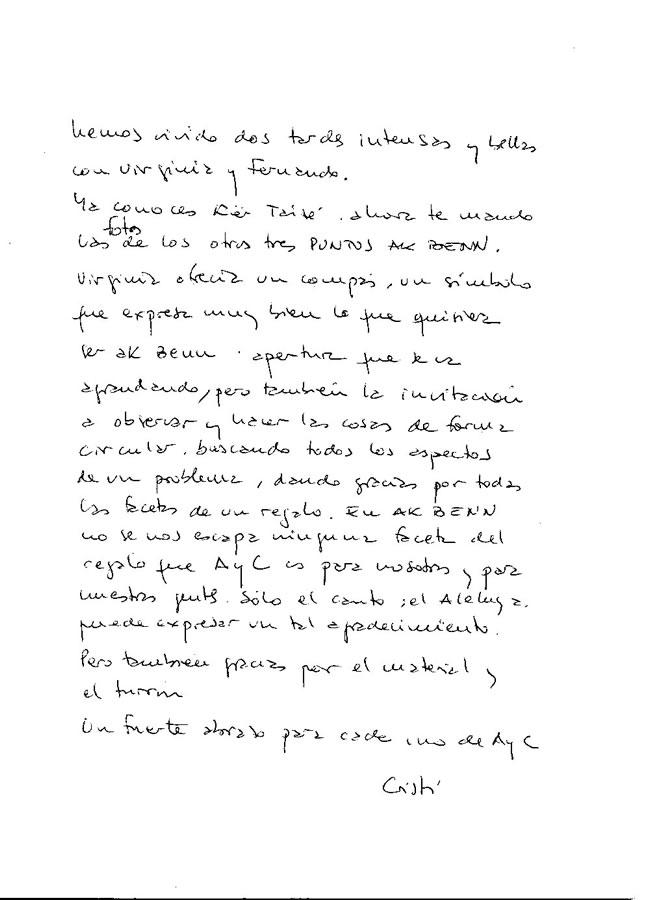 hemos vivido dos tardes intensas y bellas
con Virginia y Fernando.
Ya conoces Ker Taizé. ahora te mando
las fotos de los otros tres PUNTOS AK BENN.
Virginia ofrecía un compás, un símbolo
que expresa muy bien lo que quisiera
ser AK BENN. apertura que se va
agrandando, pero también la invitación
a observar y hacer las cosas de forma
circular. buscando todos los aspectos
de un problema, dando gracias por todas
las facetas de un regalo. En AK BENN
no se nos escapa ninguna faceta del
regalo que AyC es para nosotros y para
nuestras gentes. Sólo el canto, el Aleluya.
puede expresar un tal agradecimiento.
Pero también gracias por el material y
el turrón
Un fuerte abrazo para cada uno de AyC
Cristi